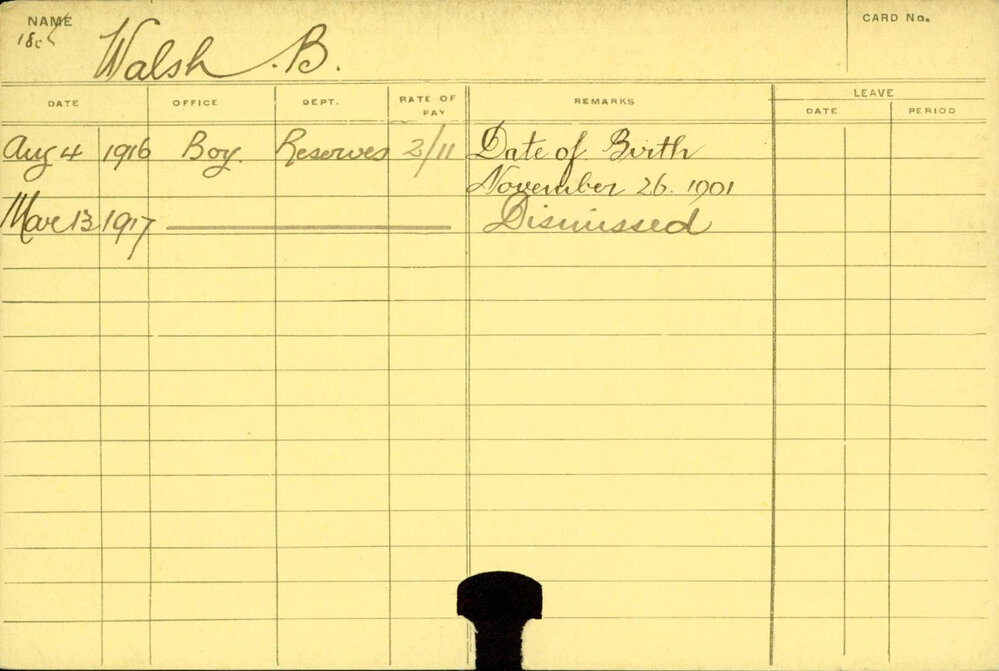 NAME
CARD No.
Walsh. B.
DATE OFFICE DEPT. RATE OF PAY REMARKS LEAVE
DATE PERIOD
Aug 4 1916 Boy. Reserves 2/11 Date of Birth
November 26. 1901
Mar 13 1917 Dismissed